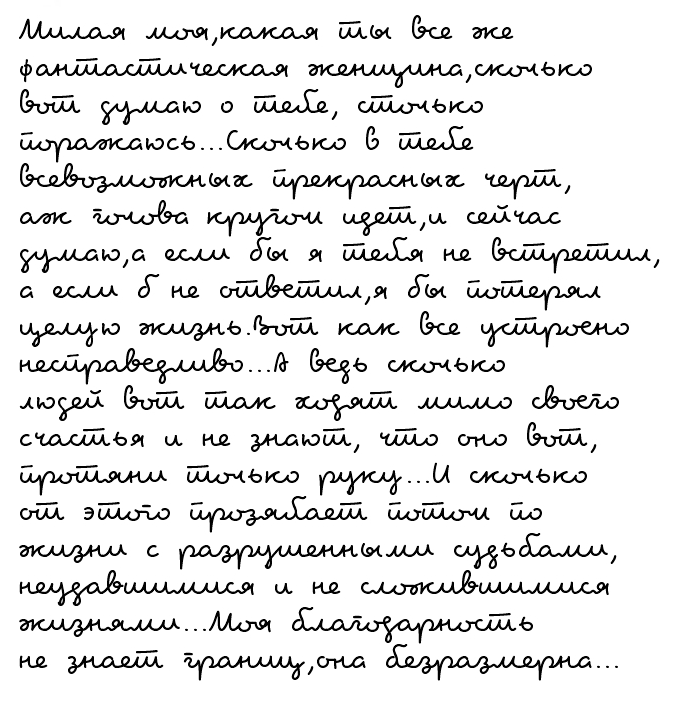 Милая моя,какая ты все же
фантастическая женщина,сколько
вот думаю о тебе, столько
поражаюсь...Сколько в тебе
всевозможных прекрасных черт,
аж голова кругом идет,и сейчас
думаю,а если бы я тебя не встретил,
а если б не ответил,я бы потерял
целую жизнь.Вот как все устроено
несправедливо...А ведь сколько
людей вот так ходят мимо своего
счастья и не знают, что оно вот,
протяни только руку...И сколько
от этого прозябает потом по
жизни с разрушенными судьбами,
неудавшимися и не сложившимися
жизнями...Моя благодарность
не знает границ,она безразмерна...